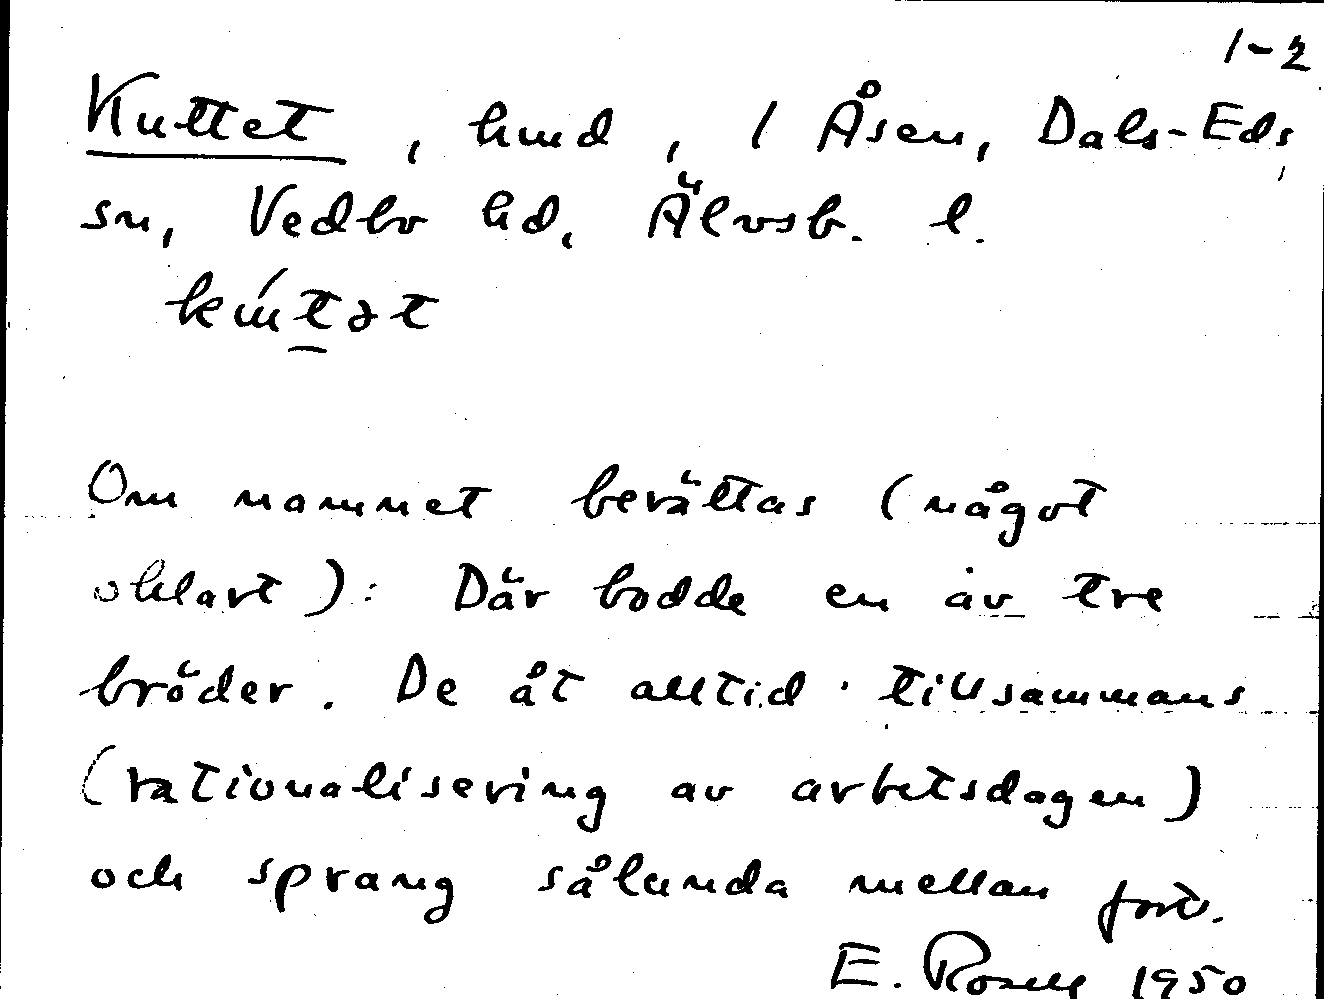 1-2
Kuttet, hmd, 1 Åsen, Dals-Eds
sn, Vedbo hd, Älvsb. l.
Om namnet berättas (något
oklart): Där bodde en av tre
bröder. De åt alltid tillsammans
(rationalisering av arbetsdagen)
och sprang sålunda mellan forts.
E. Rosell 1950